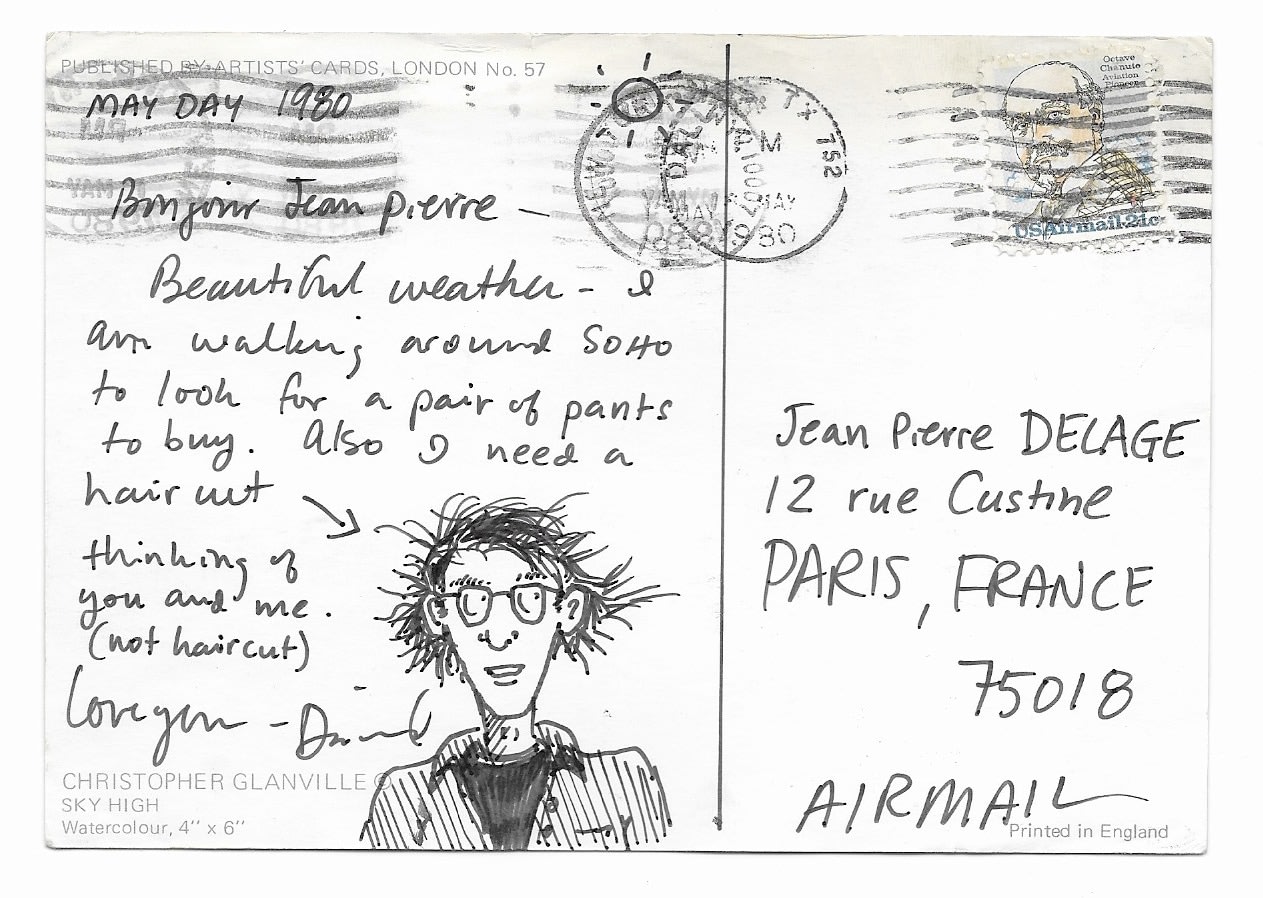 PUBLISHED BY ARTISTS' CARDS, LONDON No. 57
MAY DAY 1980
Bonjour Jean Pierre —
Beautiful weather - I
am walking around SOHO
to look for a pair of pants
to buy. Also I need a
haircut
thinking of
you and me.
(not haircut)
Love you - David
CHRISTOPHER GLANVILLE ©
SKY HIGH
Watercolour, 4" x 6"
Octave
Chanute
Aviation
Pioneer
USAirmail 21c
TX 752
PM
MAY
1980
Jean Pierre DELAGE
12 rue Custine
PARIS, FRANCE
75018
AIRMAIL
Printed in England